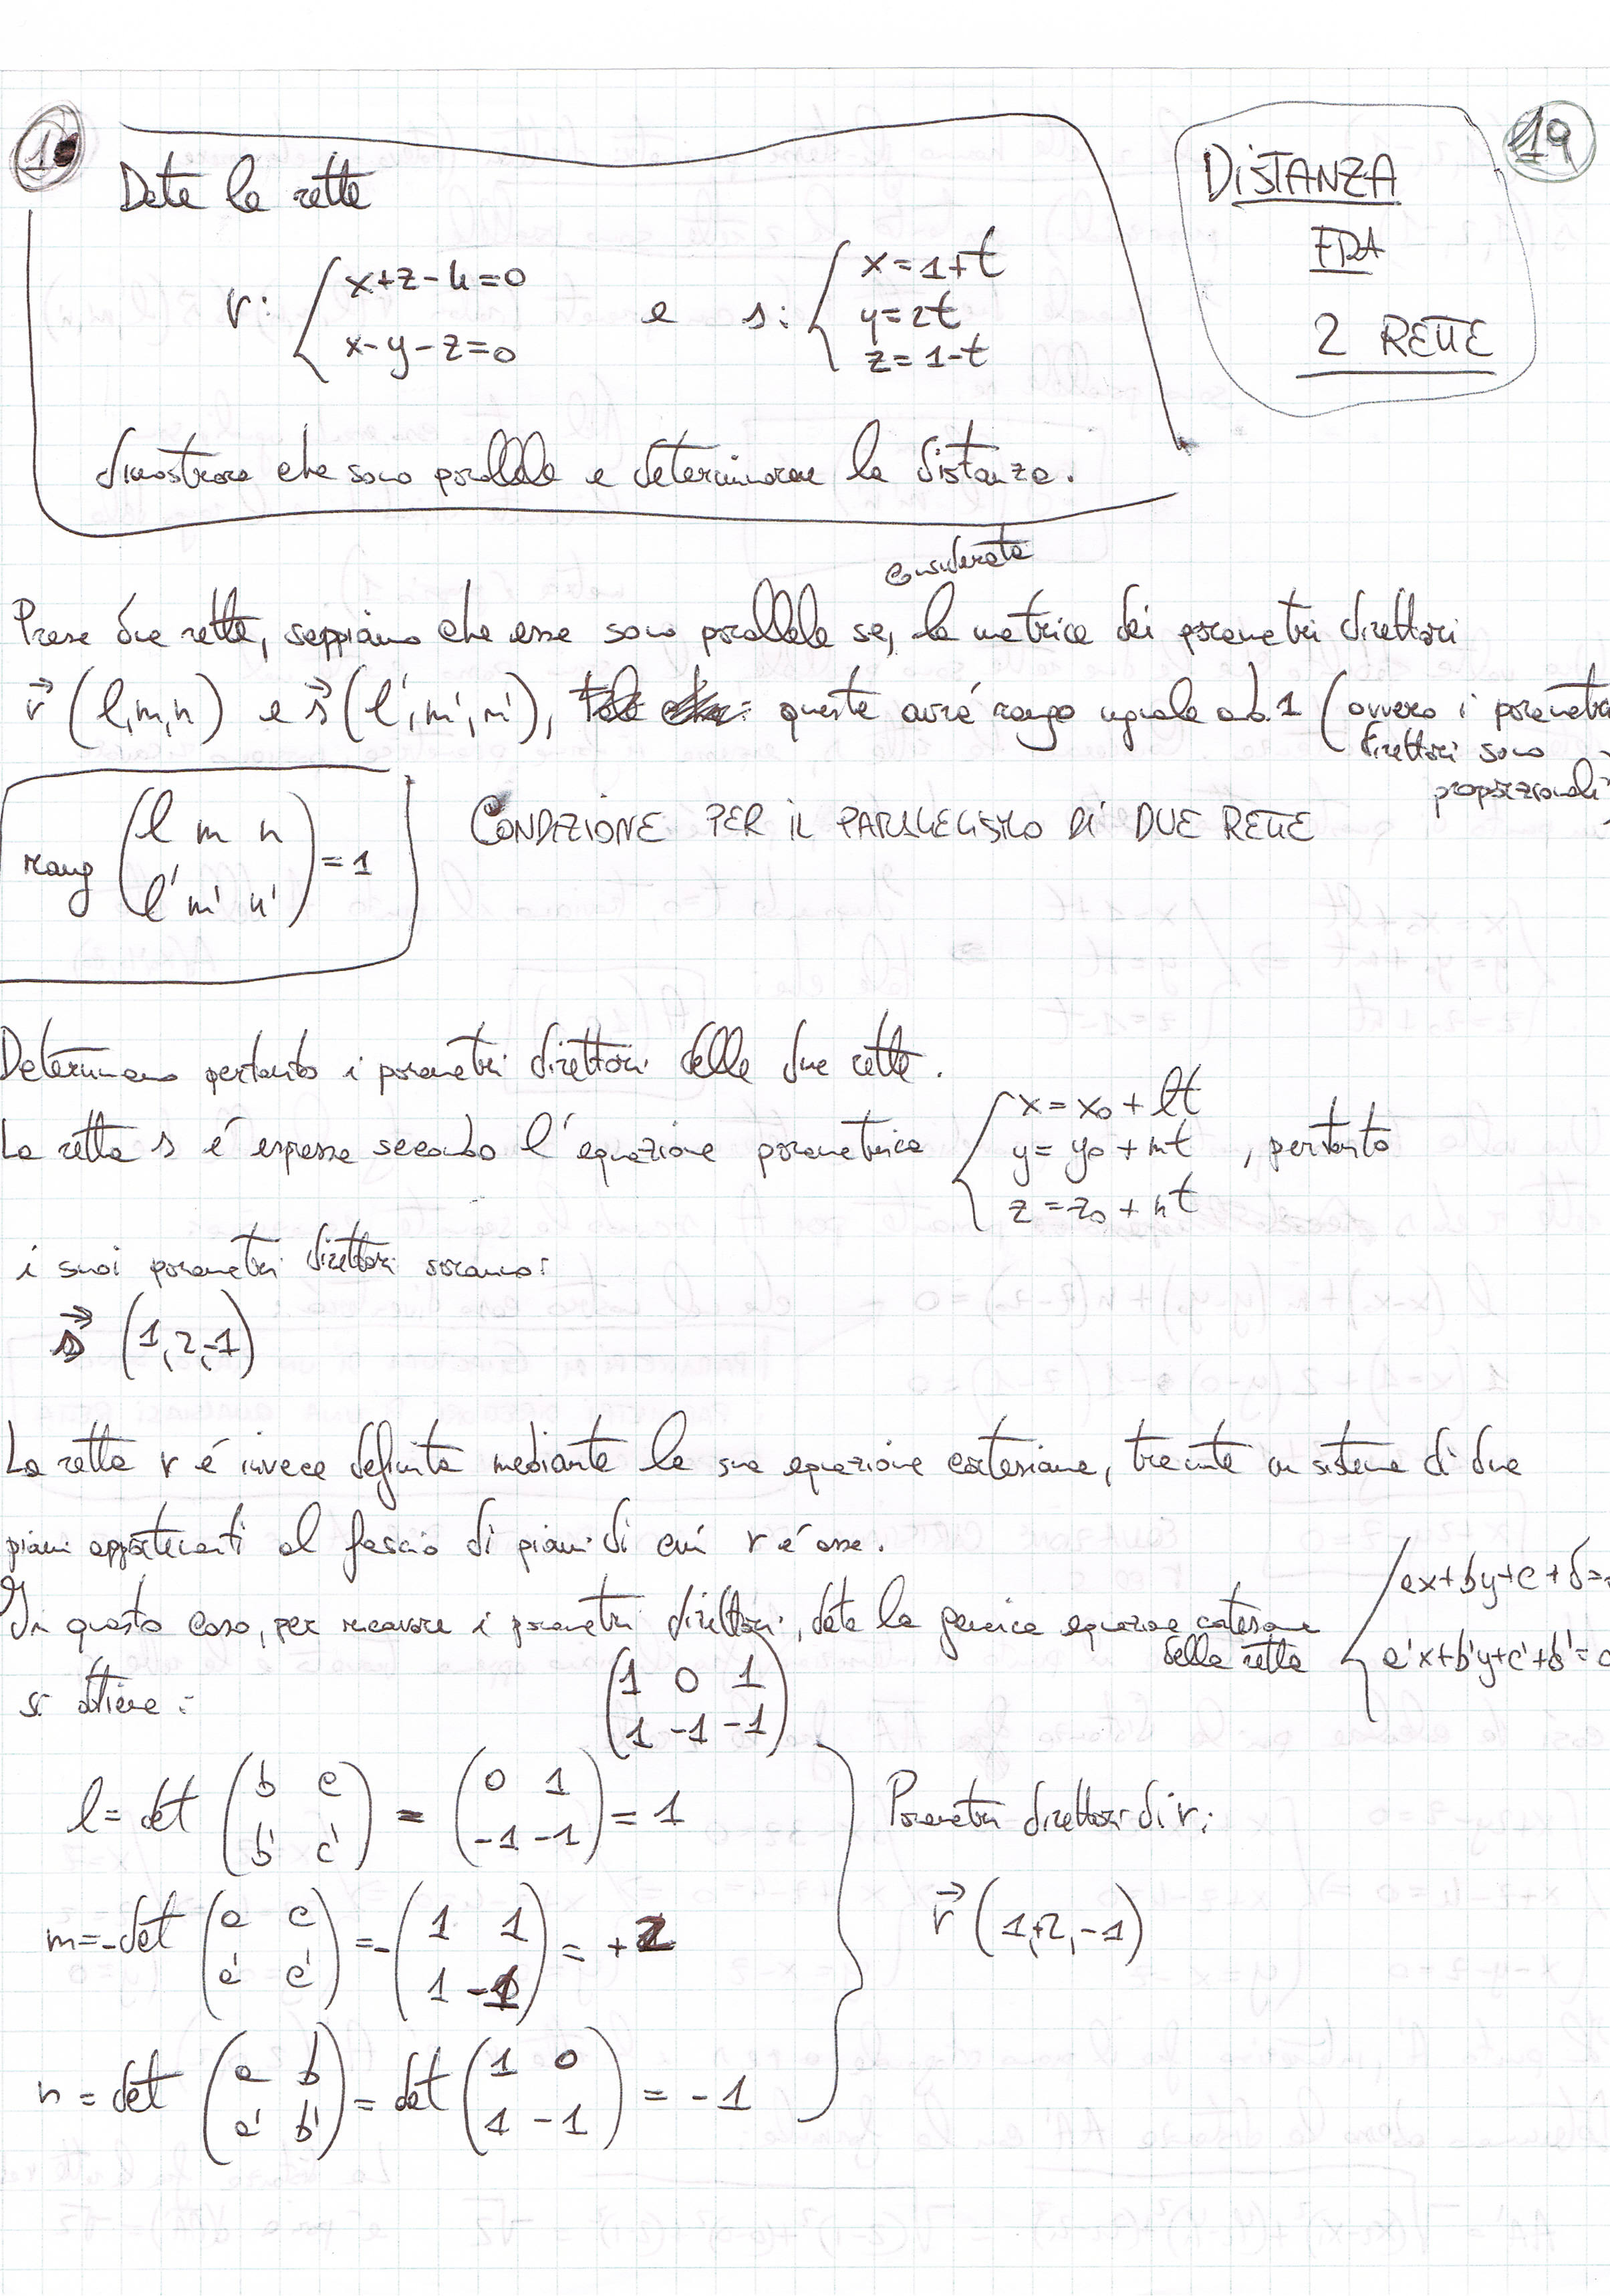 19
DISTANZA
FRA
2 RETTE
Date le rette
r: { x+z-4=0
x-y-z=0
e s: { x=1+t
y=2t
z=1-t
dimostrare che sono parallele e determinarne la distanza.
considerata
Prese due rette, sappiamo che esse sono parallele se, la matrice dei parametri direttori
r⃗ (l,m,n) e s⃗ (l',m',n'), questa avrà rango uguale ad 1 (ovvero i parametri
direttori sono
proporzionali)
rang ( l m n
l' m' n' ) = 1
CONDIZIONE PER IL PARALLELISMO DI DUE RETTE
Determiniamo pertanto i parametri direttori delle due rette.
La retta s é espressa secondo l'equazione parametrica { x = x₀ + lt
y = y₀ + mt , pertanto
z = z₀ + nt
i suoi parametri direttori saranno:
s⃗ (1,2,-1)
La retta r é invece definita mediante la sua equazione cartesiana, tramite un sistema di due
piani appartenenti al fascio di piani di cui r é asse.
In questo caso, per ricavare i parametri direttori, data la generica equazione cartesiana
della retta { ax+by+c+d=
a'x+b'y+c'+d'=0
si ottiene:
( 1 0 1
1 -1 -1 )
l = det ( b c
b' c' ) = ( 0 1
-1 -1 ) = 1
m = -det ( a c
a' c' ) = - ( 1 1
1 -1 ) = +2
n = det ( a b
a' b' ) = det ( 1 0
1 -1 ) = -1
Parametri direttori di r:
r⃗ (1,+2,-1)